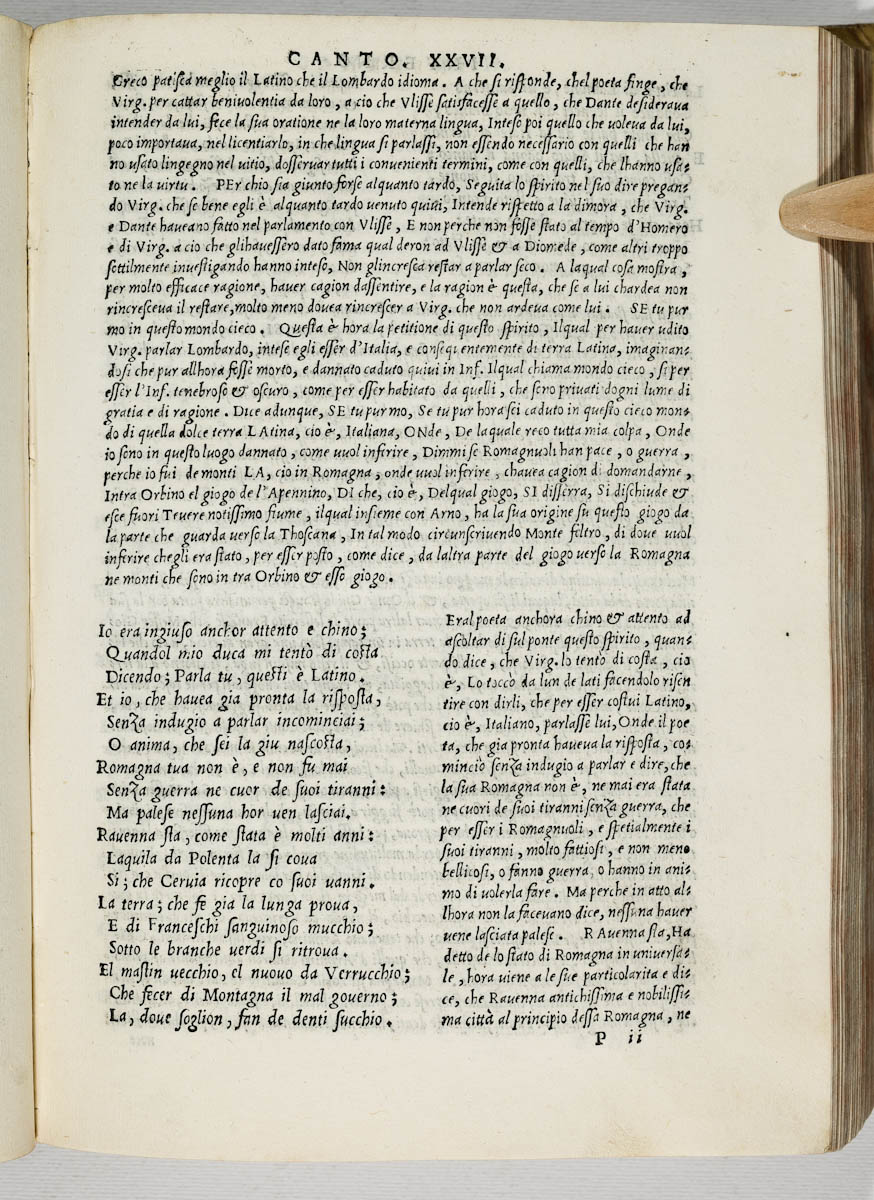 CANTO. XXVII.
Greco patisca meglio il Latino che il Lombardo idioma. A che si risponde, chel poeta finge, che
Virg. per cattar benivolentia da loro, a cio che Vlisse satisfacesse a quello, che Dante desiderava
intender da lui, fece la sua oratione ne la loro materna lingua, Inteso poi quello che voleva da lui,
poco importava, nel licentiarlo, in che lingua si parlassi, non essendo necessario con quelli che han
no usato lingegno nel vitio, dosservar tutti i convenienti termini, come con quelli, che lhanno usa-
to ne la virtu. PEr chio sia giunto forse alquanto tardo, Seguita lo spirito nel suo dire pregan-
do Virg. che se bene egli è alquanto tardo venuto quiui, Intende rispetto a la dimora, che Virg.
e Dante haveano fatto nel parlamento con Vlisse, E non perche non fosse stato al tempo d'Homero
e di Virg. a cio che glihavessero dato fama qual deron ad Vlisse & a Diomede, come altri troppo
sottilmente investigando hanno inteso, Non glincresca restar a parlar seco. A laqual cosa mostra,
per molto efficace ragione, haver cagion dassentire, e la ragion è questa, che se a lui chardea non
rincresceva il restare, molto meno dovea rincrescer a Virg. che non ardeva come lui. SE tu pur
mo in questo mondo cieco. Questa è hora la petitione di questo spirito, Ilqual per haver udito
Virg. parlar Lombardo, intese egli esser d'Italia, e conseq entemente di terra Latina, imaginan-
dosi che pur allhora fosse morto, e dannato caduto quiui in Inf. Ilqual chiama mondo cieco, si per
esser l'Inf. tenebroso & oscuro, come per esser habitato da quelli, che sono privati dogni lume di
gratia e di ragione. Dice adunque, SE tu pur mo, Se tu pur hora sei caduto in questo cieco mon-
do di quella dolce terra LAtina, cio è, Italiana, ONde, De laquale reco tutta mia colpa, Onde
io sono in questo luogo dannato, come vuol inferire, Dimmi se Romagnuoli han pace, o guerra,
perche io fui de monti LA, cio in Romagna, onde vuol inferire, chavea cagion di domandarne,
Intra Orbino el giogo de l'Apennino, DI che, cio è, Delqual giogo, SI disserra, Si dischiude &
esce fuori Tevere notissimo fiume, ilqual insieme con Arno, ha la sua origine su questo giogo da
la parte che guarda verso la Thoscana, In tal modo circunscrivendo Monte feltro, di dove vuol
inferire chegli era stato, per esser posto, come dice, da laltra parte del giogo verso la Romagna
ne monti che sono in tra Orbino & esso giogo.
Io era ingiuso anchor attento e chino;
Quandol mio duca mi tentò di costa
Dicendo; Parla tu, questi è Latino.
Et io, che havea gia pronta la risposta,
Senza indugio a parlar incominciai;
O anima, che sei la giu nascosta,
Romagna tua non è, e non fu mai
Senza guerra ne cuor de suoi tiranni:
Ma palese nessuna hor uen lasciai.
Ravenna sta, come stata è molti anni:
Laquila da Polenta la si cova
Si; che Cervia ricopre co suoi vanni.
La terra; che fe gia la lunga prova,
E di Franceschi sanguinoso mucchio;
Sotto le branche verdi si ritrova.
El mastin vecchio, el nuovo da Verrucchio;
Che fecer di Montagna il mal governo;
La, dove soglion, fan de denti succhio.
Eral poeta anchora chino & attento ad
ascoltar di sul ponte questo spirito, quan-
do dice, che Virg. lo tentò di costa, cio
è, Lo toccò da lun de lati facendolo risen
tire con dirli, che per esser costui Latino,
cio è, Italiano, parlasse lui, Onde il poe
ta, che gia pronta haveua la risposta, co-
minciò senza indugio a parlar e dire, che
la sua Romagna non è, ne mai era stata
ne cuori de suoi tiranni senza guerra, che
per esser i Romagnuoli, e spetialmente i
suoi tiranni, molto fattiosi, e non meno
bellicosi, o fanno guerra, o hanno in ani-
mo di volerla fare. Ma perche in atto al-
lhora non la facevano dice, nessuna haver
vene lasciata palese. RAvenna sta, Ha
detto de lo stato di Romagna in universa-
le, hora viene a le sue particolarita e di-
ce, che Ravenna antichissima e nobilissi-
ma città al principio dessa Romagna, ne
P ii